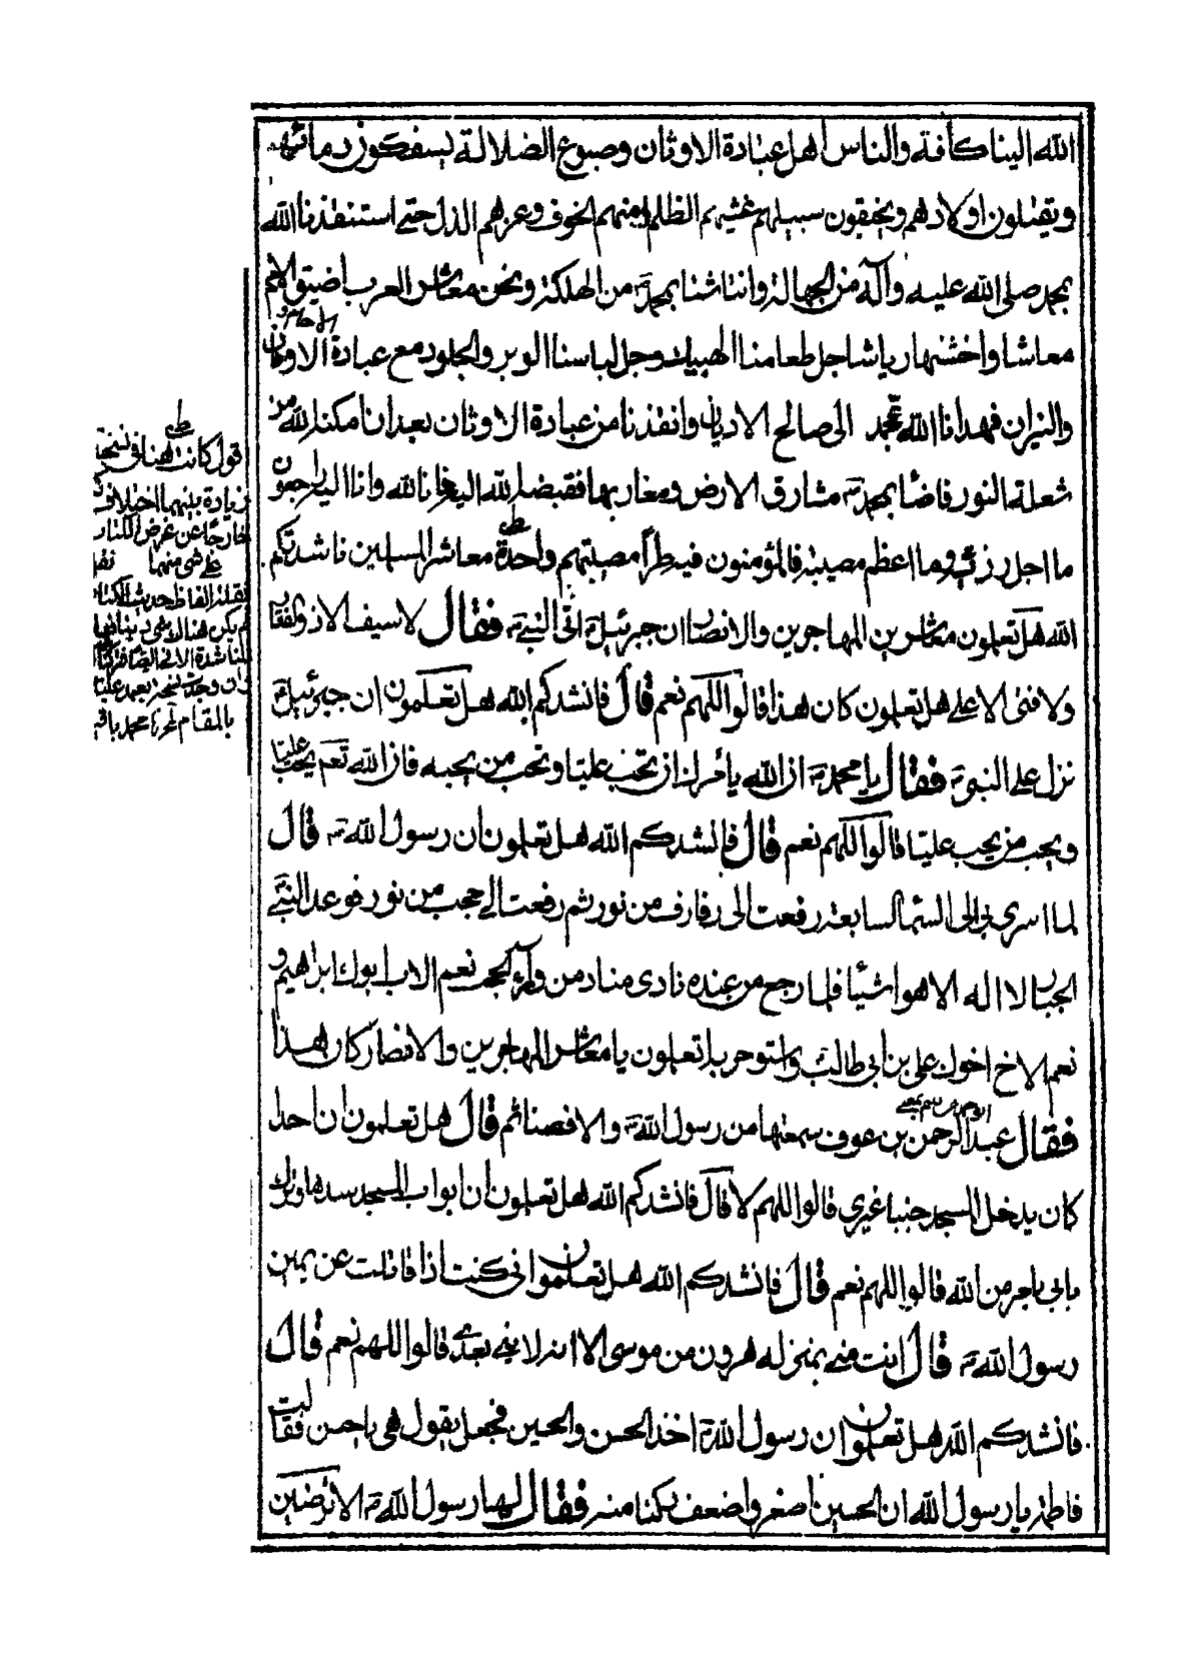 الله الينا كافة والناس اهل عبادة الاوثان وصبوع الضلالة يسفكون دمائهم
ويقتلون اولادهم ويخيفون سبيلهم عيشهم الظلم وامنهم الخوف وعزهم الذل حتى استنقذنا الله
بمحمد صلى الله عليه وآله من الجهالة وانتاشنا بمحمد ص من الهلكة ونحن معاشر العرب اضيق الامم
معاشا واخشنهم رياشا جل طعامنا الهبيد وجل لباسنا الوبر والجلود مع عبادة الاوثان
والنيران فهدانا الله بمحمد الى صالح الاديان وانقذنا من عبادة الاوثان بعد ان امكننا الله من
شعلة النور فاضاء بمحمد ص مشارق الارض ومغاربها فقبضه الله اليه فانا لله وانا اليه راجعون
ما اجل رزيته وما اعظم مصيبته فالمؤمنون فيه طرا مصيبتهم واحدة معاشر المسلمين ناشدتكم
الله هل تعلمون معاشر المهاجرين والانصار ان جبرئيل ع اتى النبي ص فقال لا سيف الا ذو الفقار
ولا فتى الا علي هل تعلمون كان هذا قالوا اللهم نعم قال فانشدكم الله هل تعلمون ان جبرئيل ع
نزل على النبي ص فقال يا محمد ص ان الله يأمرك ان تحب عليا وتحب من يحبه فان الله تعم يحب عليا
ويحب من يحب عليا قالوا اللهم نعم قال فانشدكم الله هل تعلمون ان رسول الله ص قال
لما اسري بي الى السماء السابعة رفعت الى رفارف من نور ثم رفعت الى حجب من نور فوعد النبي
الجبار لا اله الا هو اشياء فلما رجع من عنده نادى مناد من وراء الحجب نعم الاب ابوك ابراهيم و
نعم الاخ اخوك علي بن ابي طالب واستوص به اتعلمون يا معاشر المهاجرين والانصار كان هذا
فقال عبد الرحمن بن عوف سمعتها من رسول الله ص والا فصمتا ثم قال هل تعلمون ان احدا
كان يدخل المسجد جنبا غيري قالوا اللهم لا قال فانشدكم الله هل تعلمون ان ابواب المسجد سدها وترك
بابي بامر من الله قالوا اللهم نعم قال فانشدكم الله هل تعلمون اني كنت اذا قاتلت عن يمين
رسول الله ص قال انت مني بمنزلة هرون من موسى الا انه لا نبي بعدي قالوا اللهم نعم قال
فانشدكم الله هل تعلمون ان رسول الله ص اخذ الحسن والحسين فجعل يقول هي يا حسن فقالت
فاطمة يا رسول الله ان الحسين اصغر واضعف ركنا منه فقال لها رسول الله ص الا ترضين
قول كانت هنا في نسخة
زيادة بينهما اختلاف
خارجا عن غرض الكتاب